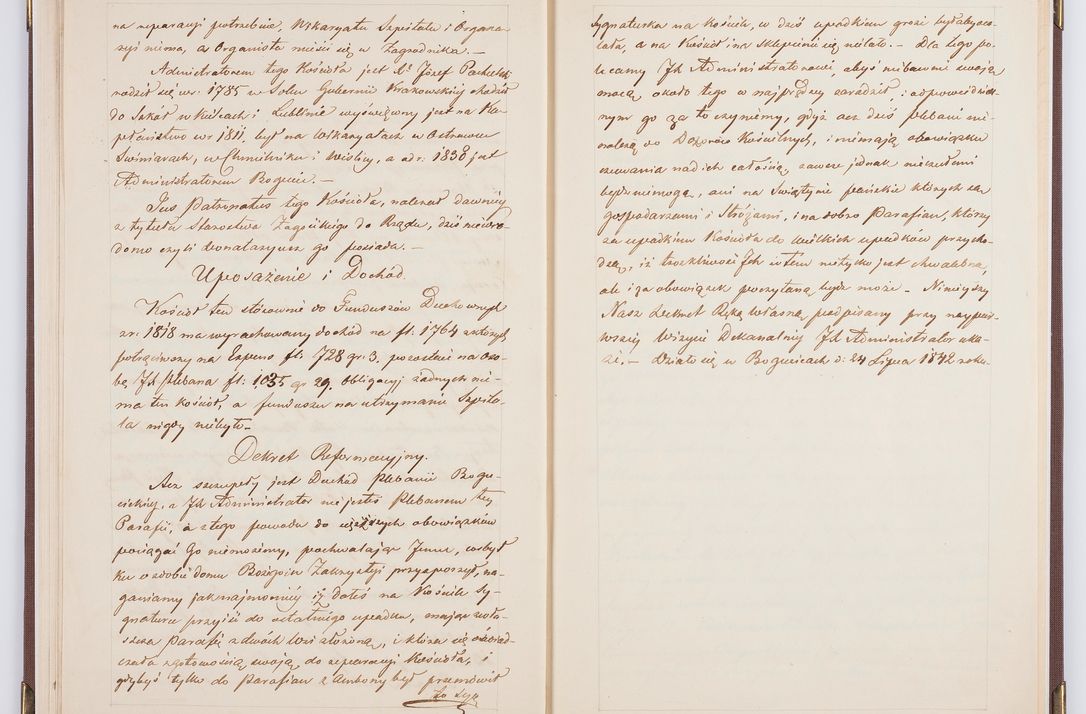 na reparacji potrzebuie, Wikaryatu Szpitalu i Organa-
ryi niema, a Organista mieści się w Zagrodnika. —
Administratorem tego Kościoła jest X. Józef
rodził się w r. 1785 w Solcu Gubernii Krakowskiej chodził
do Szkół w Kielcach i Lublinie wyświęcony jest na Ka-
płaństwo w r. 1811. był na Wikaryatach w Ostrowcu
Świniarach, w Chmielniku i Wiślicy, a od r. 1838 jest
Administratorem Bogucic. —
Jus Patronatus tego Kościoła, należał dawniej
z tytułu Starostwa Zagojskiego do Rządu, dziś niewia-
domo czyli donataryusz go posiada. —
Uposażenie i Dochód.
Kościół ten stósownie do Funduszów Duchownych
z r. 1818 ma wyrachowany dochód na fl. 1764 z których
potrąciwszy na Expens fl. 728 gr. 3, pozostaie na Oso-
bę JX Plebana fl: 1035 gr 29. Obligacyj żadnych nie-
ma ten Kościół, a funduszu na utrzymanie Szpita-
la nigdy niebyło.
Dekret Reformacyjny.
Acz szczupły jest Dochód Plebanii Bogu-
cickiey, a JX Administrator nie jesteś Plebanem tey
Parafii, a z tego powodu do obowiązków
pociągać Go niemożemy, pochwalając Jemu, cożbył
ku ozdobie domu Bożego i w Zakrystyi przysporzył, na-
ganiamy jaknajmocniey iż dałeś na Kościele Sy-
gnaturce przyiść do ostatniego upadku, mając zwła-
szcza Parafię z dwóch Wsi złożoną, i która się oświad-
czała z gotowością swoją do reparacji Kościoła, i
gdybyś tylko do Parafian z Ambony był przemówił
to Syg
Sygnaturka na Kościele, w dziś upadkiem grozi byłaby oca-
lała, a na Kościół i na sklepienie nie ciekło. — Dla tego po-
lecamy JX Administratorowi, abyś niebawnie swoją
mocą około tego w najprędzey zaradził i odpowiedzial-
nym go za to czynimy, gdyż acz dziś Plebani nie
należą do Dozorów Kościelnych, i niemają obowiązku
czuwania nad ich całością, zawsze jednak nieczułemi
bydź niemogą, ani na Świątynie Pańskie których są
gospodarzami i Stróżami, i na dobro Parafian, którzy
za upadkiem Kościoła do wielkich upadków przycho-
dzą, iż troskliwość Ich w tem nietylko jest chwalebna,
ale i za obowiązek poczytaną bydź może. — Ninieyszy
Nasz Dekret Ręką własną podpisany przy naypier-
wszey Wizycie Dekanalney JX Administrator oka-
że. — Działo się w Bogucicach d: 24 Lipca 1842 roku.